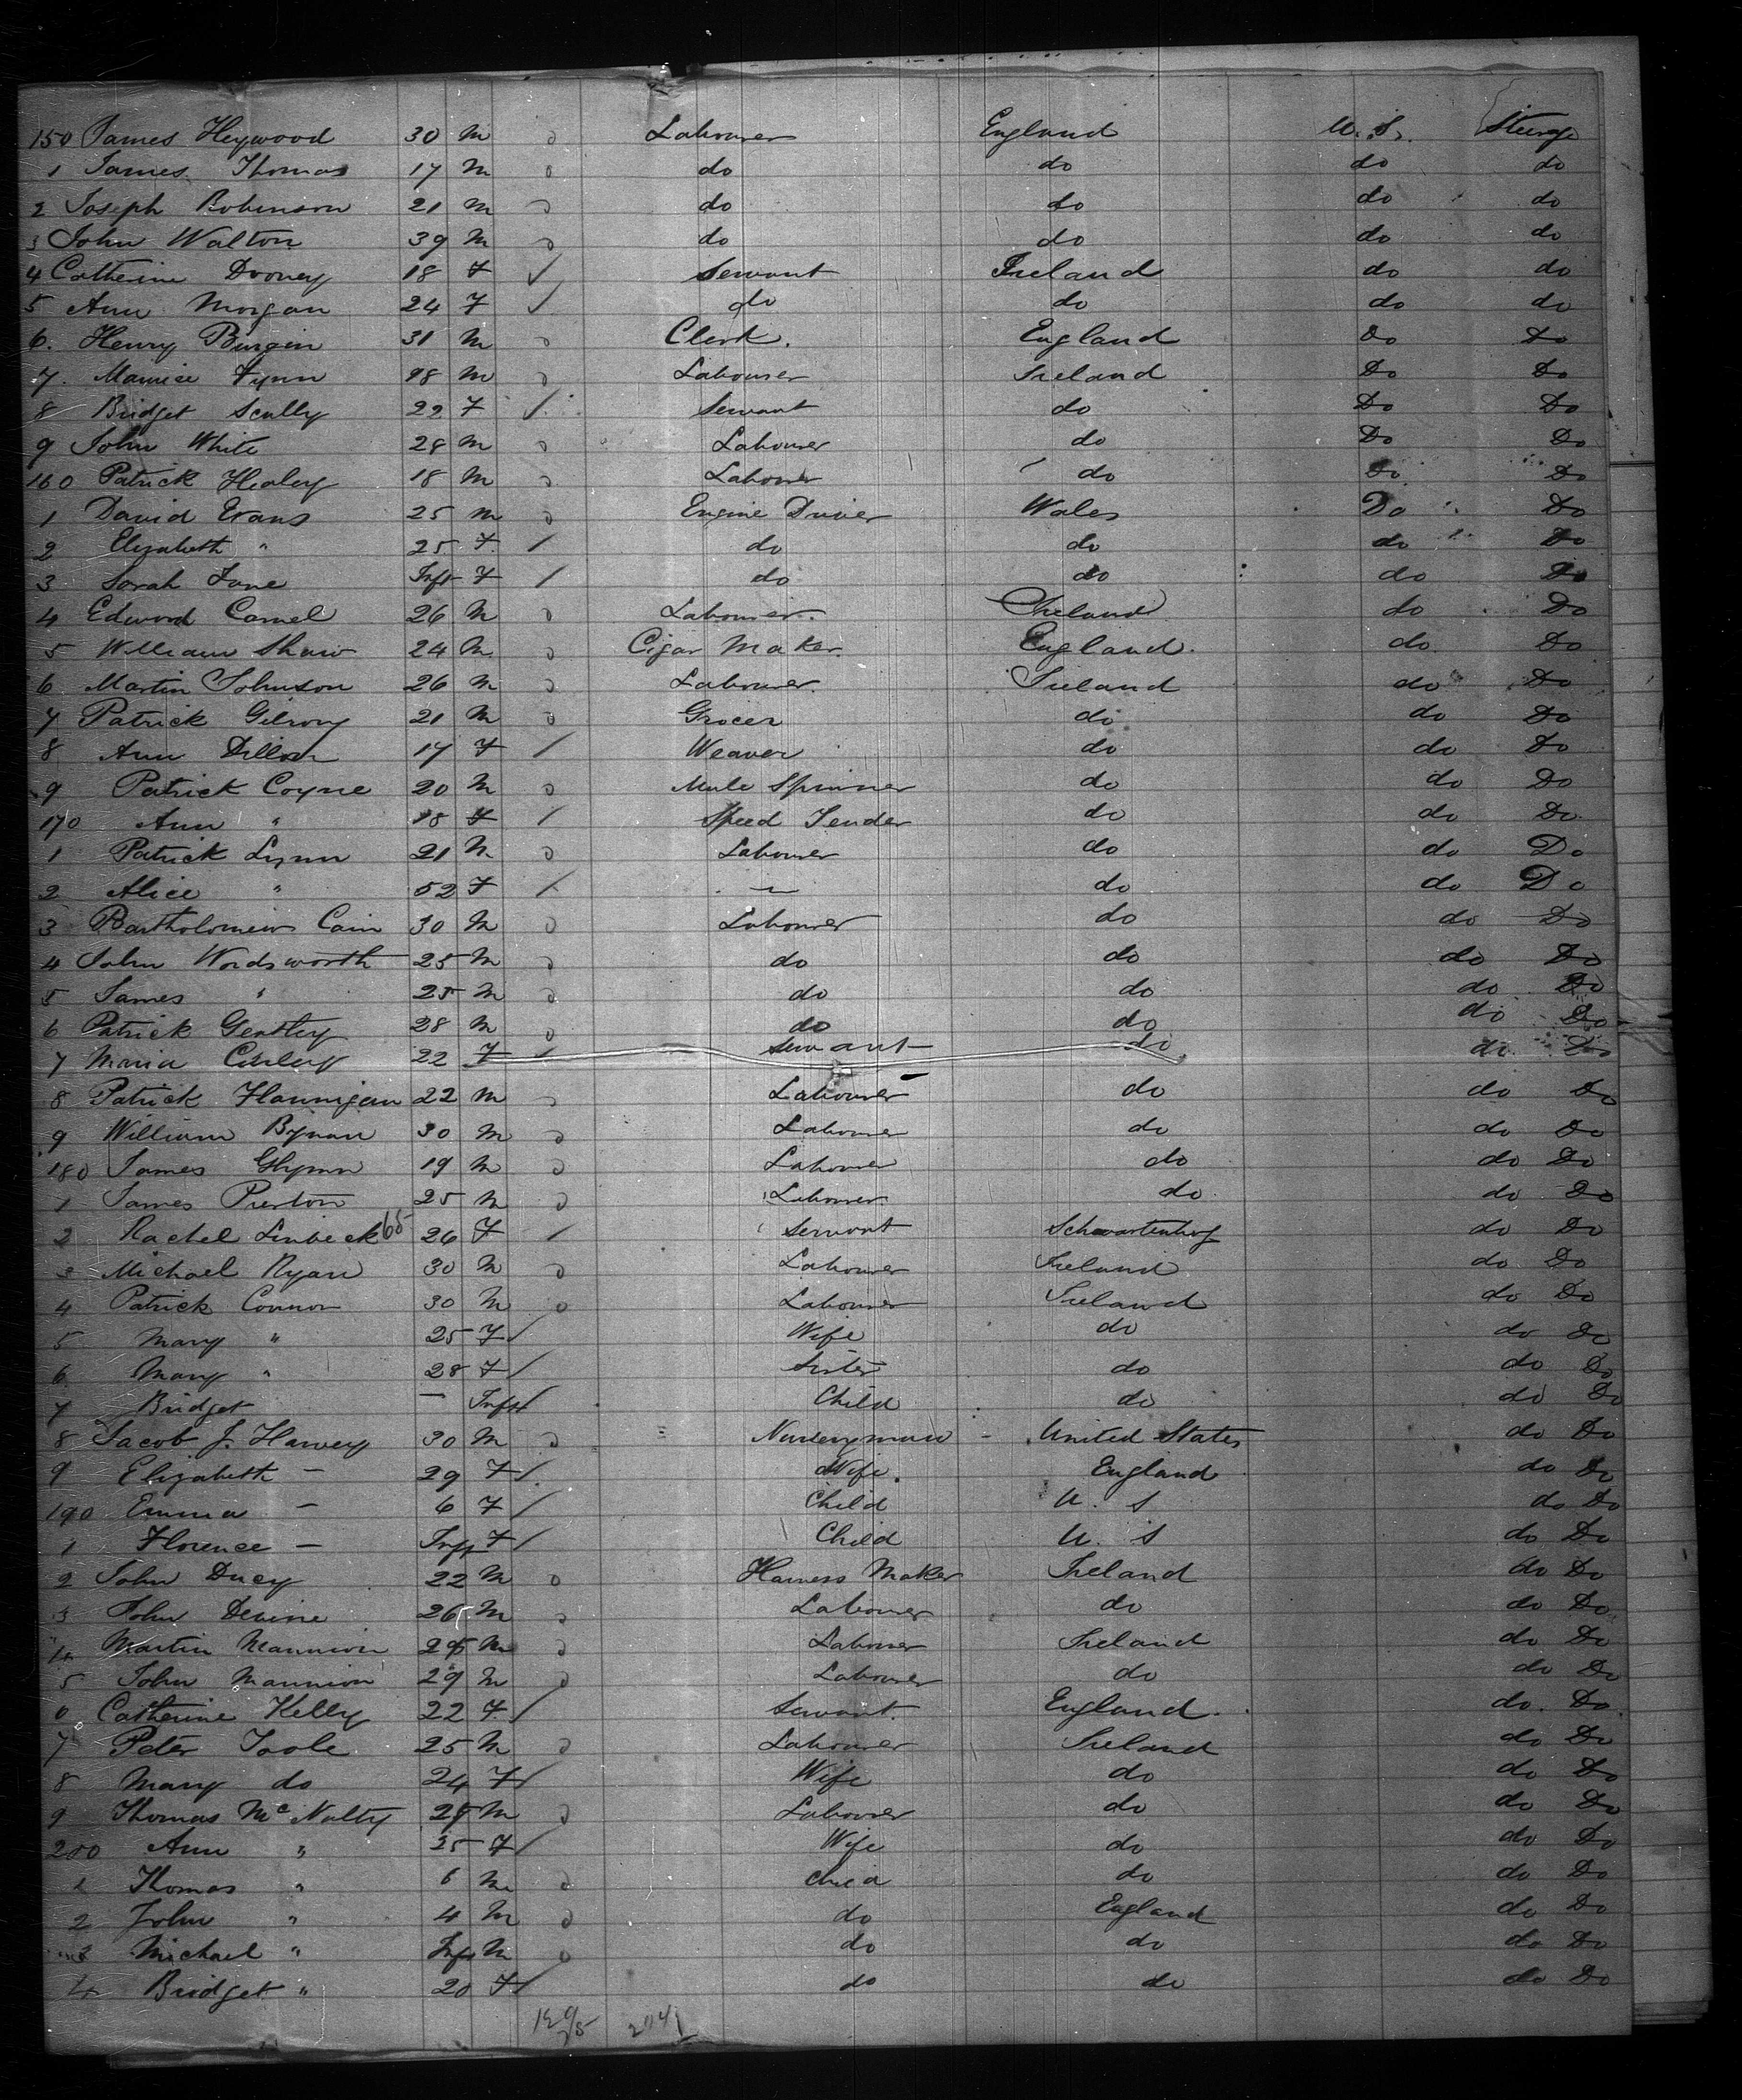 150 James Heywood 30 M Labourer England U.S. Steerage
1 James Thomas 17 M do do do do
2 Joseph Robinson 21 M do do do do
3 John Walton 39 M do do do do
4 Catherine Drovney 18 F Servant Ireland do do
5 Ann Morgan 24 F do do do do
6. Henry Burgin 31 M Clerk. England Do Do
7. Maurice Flynn 28 M Labourer Ireland Do Do
8 Bridget Scully 22 F Servant do Do Do
9 John White 28 M Labourer do Do Do
160 Patrick Healey 18 M Labourer do Do Do
1 David Evans 25 M Engine Driver Wales Do Do
2 Elizabeth " 25 F do do do Do
3 Sarah Jane Inft F do do do Do
4 Edward Camel 26 M Labourer. Ireland do Do
5 William Shaw 24 M Cigar Maker England. do Do
6 Martin Johnson 26 M Labourer. Ireland do Do
7 Patrick Gilroy 21 M Grocer do do Do
8 Ann Dillon 17 F Weaver do do Do
9 Patrick Coyne 20 M Mule Spinner do do Do
170 Ann " 18 F Speed Tender do do Do
1 Patrick Lynn 21 M Labourer do do Do
2 Alice " 52 F — do do Do
3 Bartholomew Cain 30 M Labourer do do Do
4 John Wordsworth 25 M do do do Do
5 James " 25 M do do do Do
6 Patrick 28 M do do do Do
7 Maria Curley 22 F Servant do do Do
8 Patrick Flannigan 22 M Labourer do do Do
9 William 30 M Labourer do do Do
180 James Glynn 19 M Labourer do do Do
1 James Preston 25 M Labourer do do Do
2 Rachel Linbeck 65 26 F Servant do Do
3 Michael Ryan 30 M Labourer Ireland do Do
4 Patrick Connor 30 M Labourer Ireland do Do
5 Mary " 25 F Wife do do Do
6 Mary " 28 F Sister do do Do
7 Bridget — Inft Child do do Do
8 Jacob J. Harvey 30 M Nurseryman United States do Do
9 Elizabeth — 29 F Wife England do Do
190 Emma — 6 F Child U. S do Do
1 Florence — Inft F Child U. S do Do
2 John Ducy 22 M Harness Maker Ireland do Do
3 John Devine 26 M Labourer do do Do
4 Martin Mannion 25 M Labourer Ireland do Do
5 John Mannion 29 M Labourer do do Do
6 Catherine Kelly 22 F Servant. England. do Do
7 Peter Toole 25 M Labourer Ireland do Do
8 Mary do 24 F Wife do do Do
9 Thomas McNulty M Labourer do do Do
200 Ann " 25 F Wife do do Do
1 Thomas " 6 M Child do do Do
2 John " 4 M do England do Do
3 Michael " Inft M do do do Do
4 Bridget " 20 F do do do Do
204